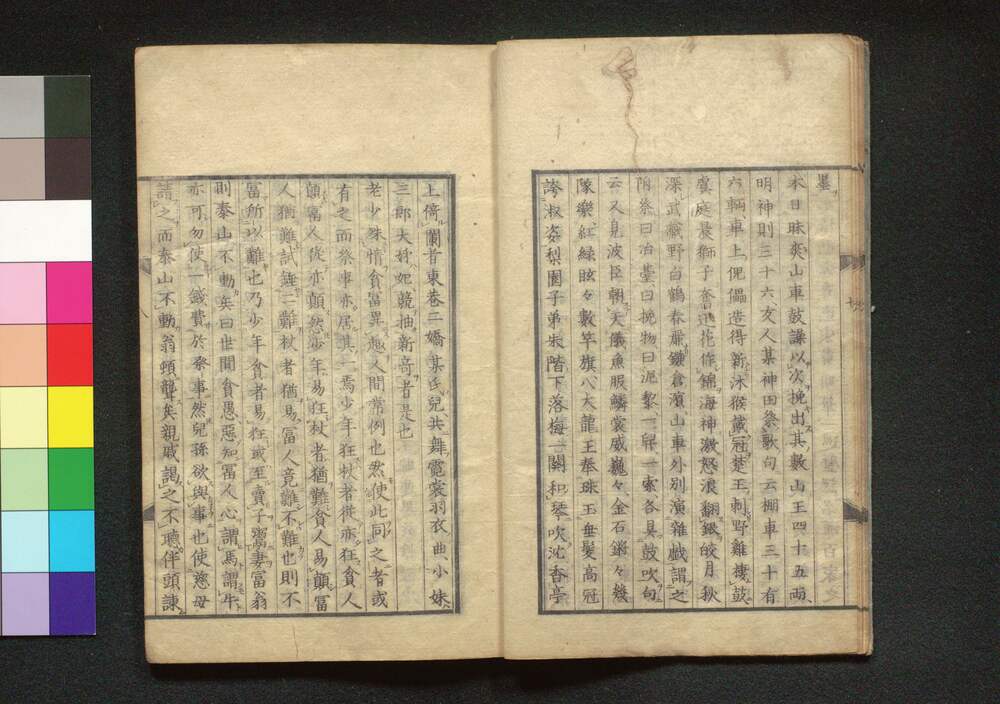 墨
本日昧爽山車鼓譟以次挽出其數山王四十五兩
明神則三十六、友人某神田祭歌句云棚車三十有
六輌、車上傀儡造得新、沐猴戴冠楚王、刺野雞棲鼓
虞庭、晨獅子奮迅花作錦、海神激怒浪翻銀、皎月秋
深武藏野、白鶴春麗鎌倉濱、山車外別演雜戲謂之
附祭曰冶臺曰挽物曰泥黎一舁一索各具鼓吹句
云又見波臣朝天儀魚服鱗裳威巍々金石鏘々幾
隊樂紅緑眩々數竿旗八大龍王奉珠玉垂髮高冠
誇淑姿梨園子弟朱階下落梅一闋和琴吹沈香亭
上倚闌首東巷三嬌某氏兒共舞霓裳羽衣曲小妹
三郎大姉妃競抽新奇者是也
老少殊情貧富異趣人間常例也然使此同之者或
有之而祭事亦居其一焉少年狂杖者徙亦狂貧人
顛富人從亦顛然少年易狂杖者猶難貧人易顛富
人猶難試錘二難杖者猶易富人竟難不難也則不
富所以難也乃少年貧者易狂或至賣子鬻妻富翁
則泰山不動矣曰世間貧愚惡知富人心謂馬謂牛
亦可勿使一錢費於祭事然兒孫欲與事也使慈母
請之而泰山不動翁頓聾矣親戚謁之不聽伴頭諫